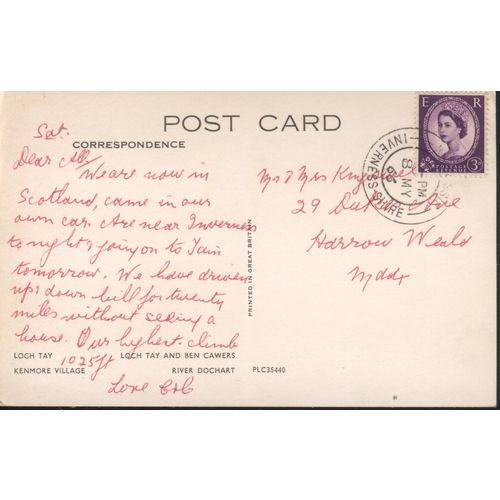 POST CARD
CORRESPONDENCE
Sat.
Dear All
We are now in
Scotland, came in our
own car. Are near Inverness
tonight & going on to Tain
tomorrow. We have driven
up & down hill for twenty
miles without seeing a
house. Our highest climb
1025ft
Love
LOCH TAY LOCH TAY AND BEN CAWERS
KENMORE VILLAGE RIVER DOCHART PLC35440
PRINTED IN GREAT BRITAIN
Mr & Mrs
29 Ave
Harrow Weald
Mddx
E R
POSTAGE REVENUE
3D
INVERNESS-SHIRE
PM
8 MY